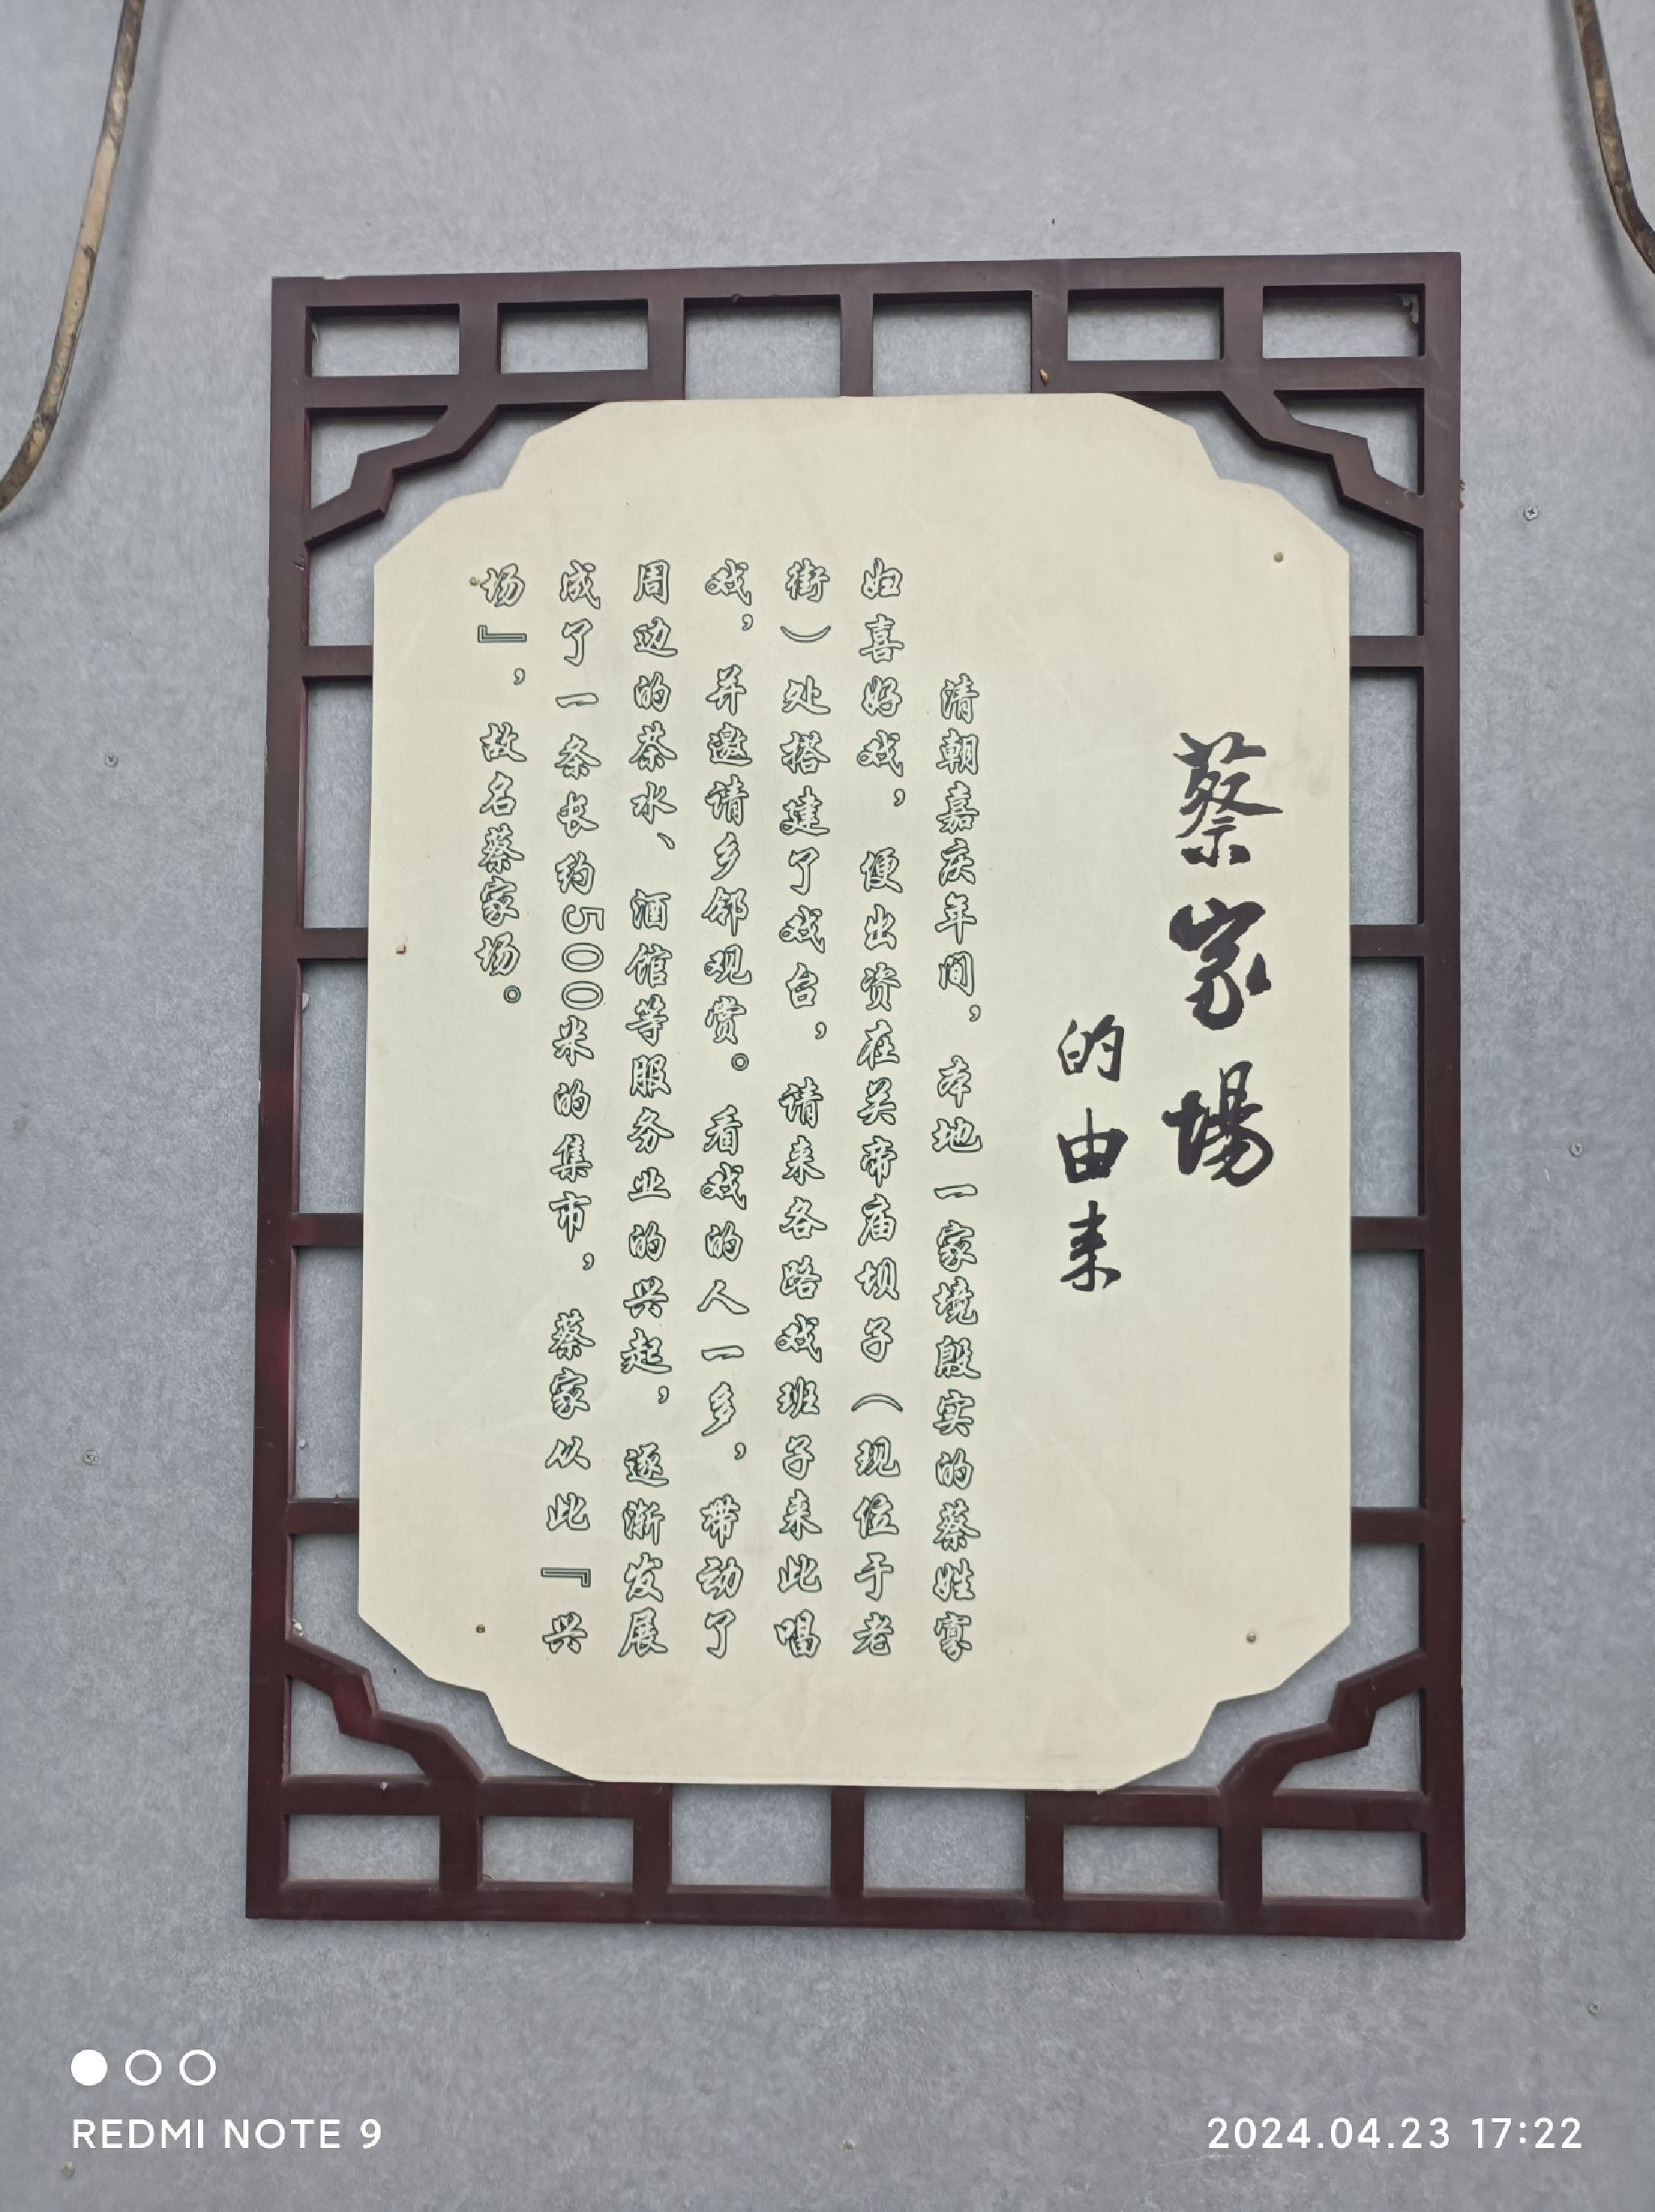 蔡家場
的由来
清朝嘉庆年间，本地一家境殷实的蔡姓寡
妇喜好戏，便出资在关帝庙坝子（现位于老
街）处搭建了戏台，请来各路戏班子来此唱
戏，并邀请乡邻观赏。看戏的人一多，带动了
周边的茶水、酒馆等服务业的兴起，逐渐发展
成了一条长约500米的集市，蔡家从此『兴
场』，故名蔡家场。
REDMI NOTE 9
2024.04.23 17:22